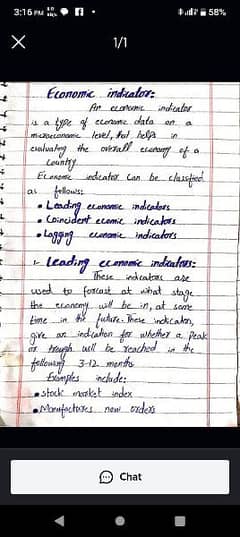 3:15 PM
58%
1/1
Economic indicator:
An economic indicator
is a type of economic data on a
level, that helps in
evaluating the overall economy of a
Country.
Economic indicator can be classified
as follows:
• Leading economic indicators
• Coincident indicators
• Lagging economic indicators
1- Leading economic indicators:
These indicators are
used to forcast at what stage
the economy will be in, at some
time in the future. These indicators,
give an indication for whether a peak
or trough will be reached in the
following 3-12 months
Examples include:
• stock market index
• Manufactures new orders
Chat